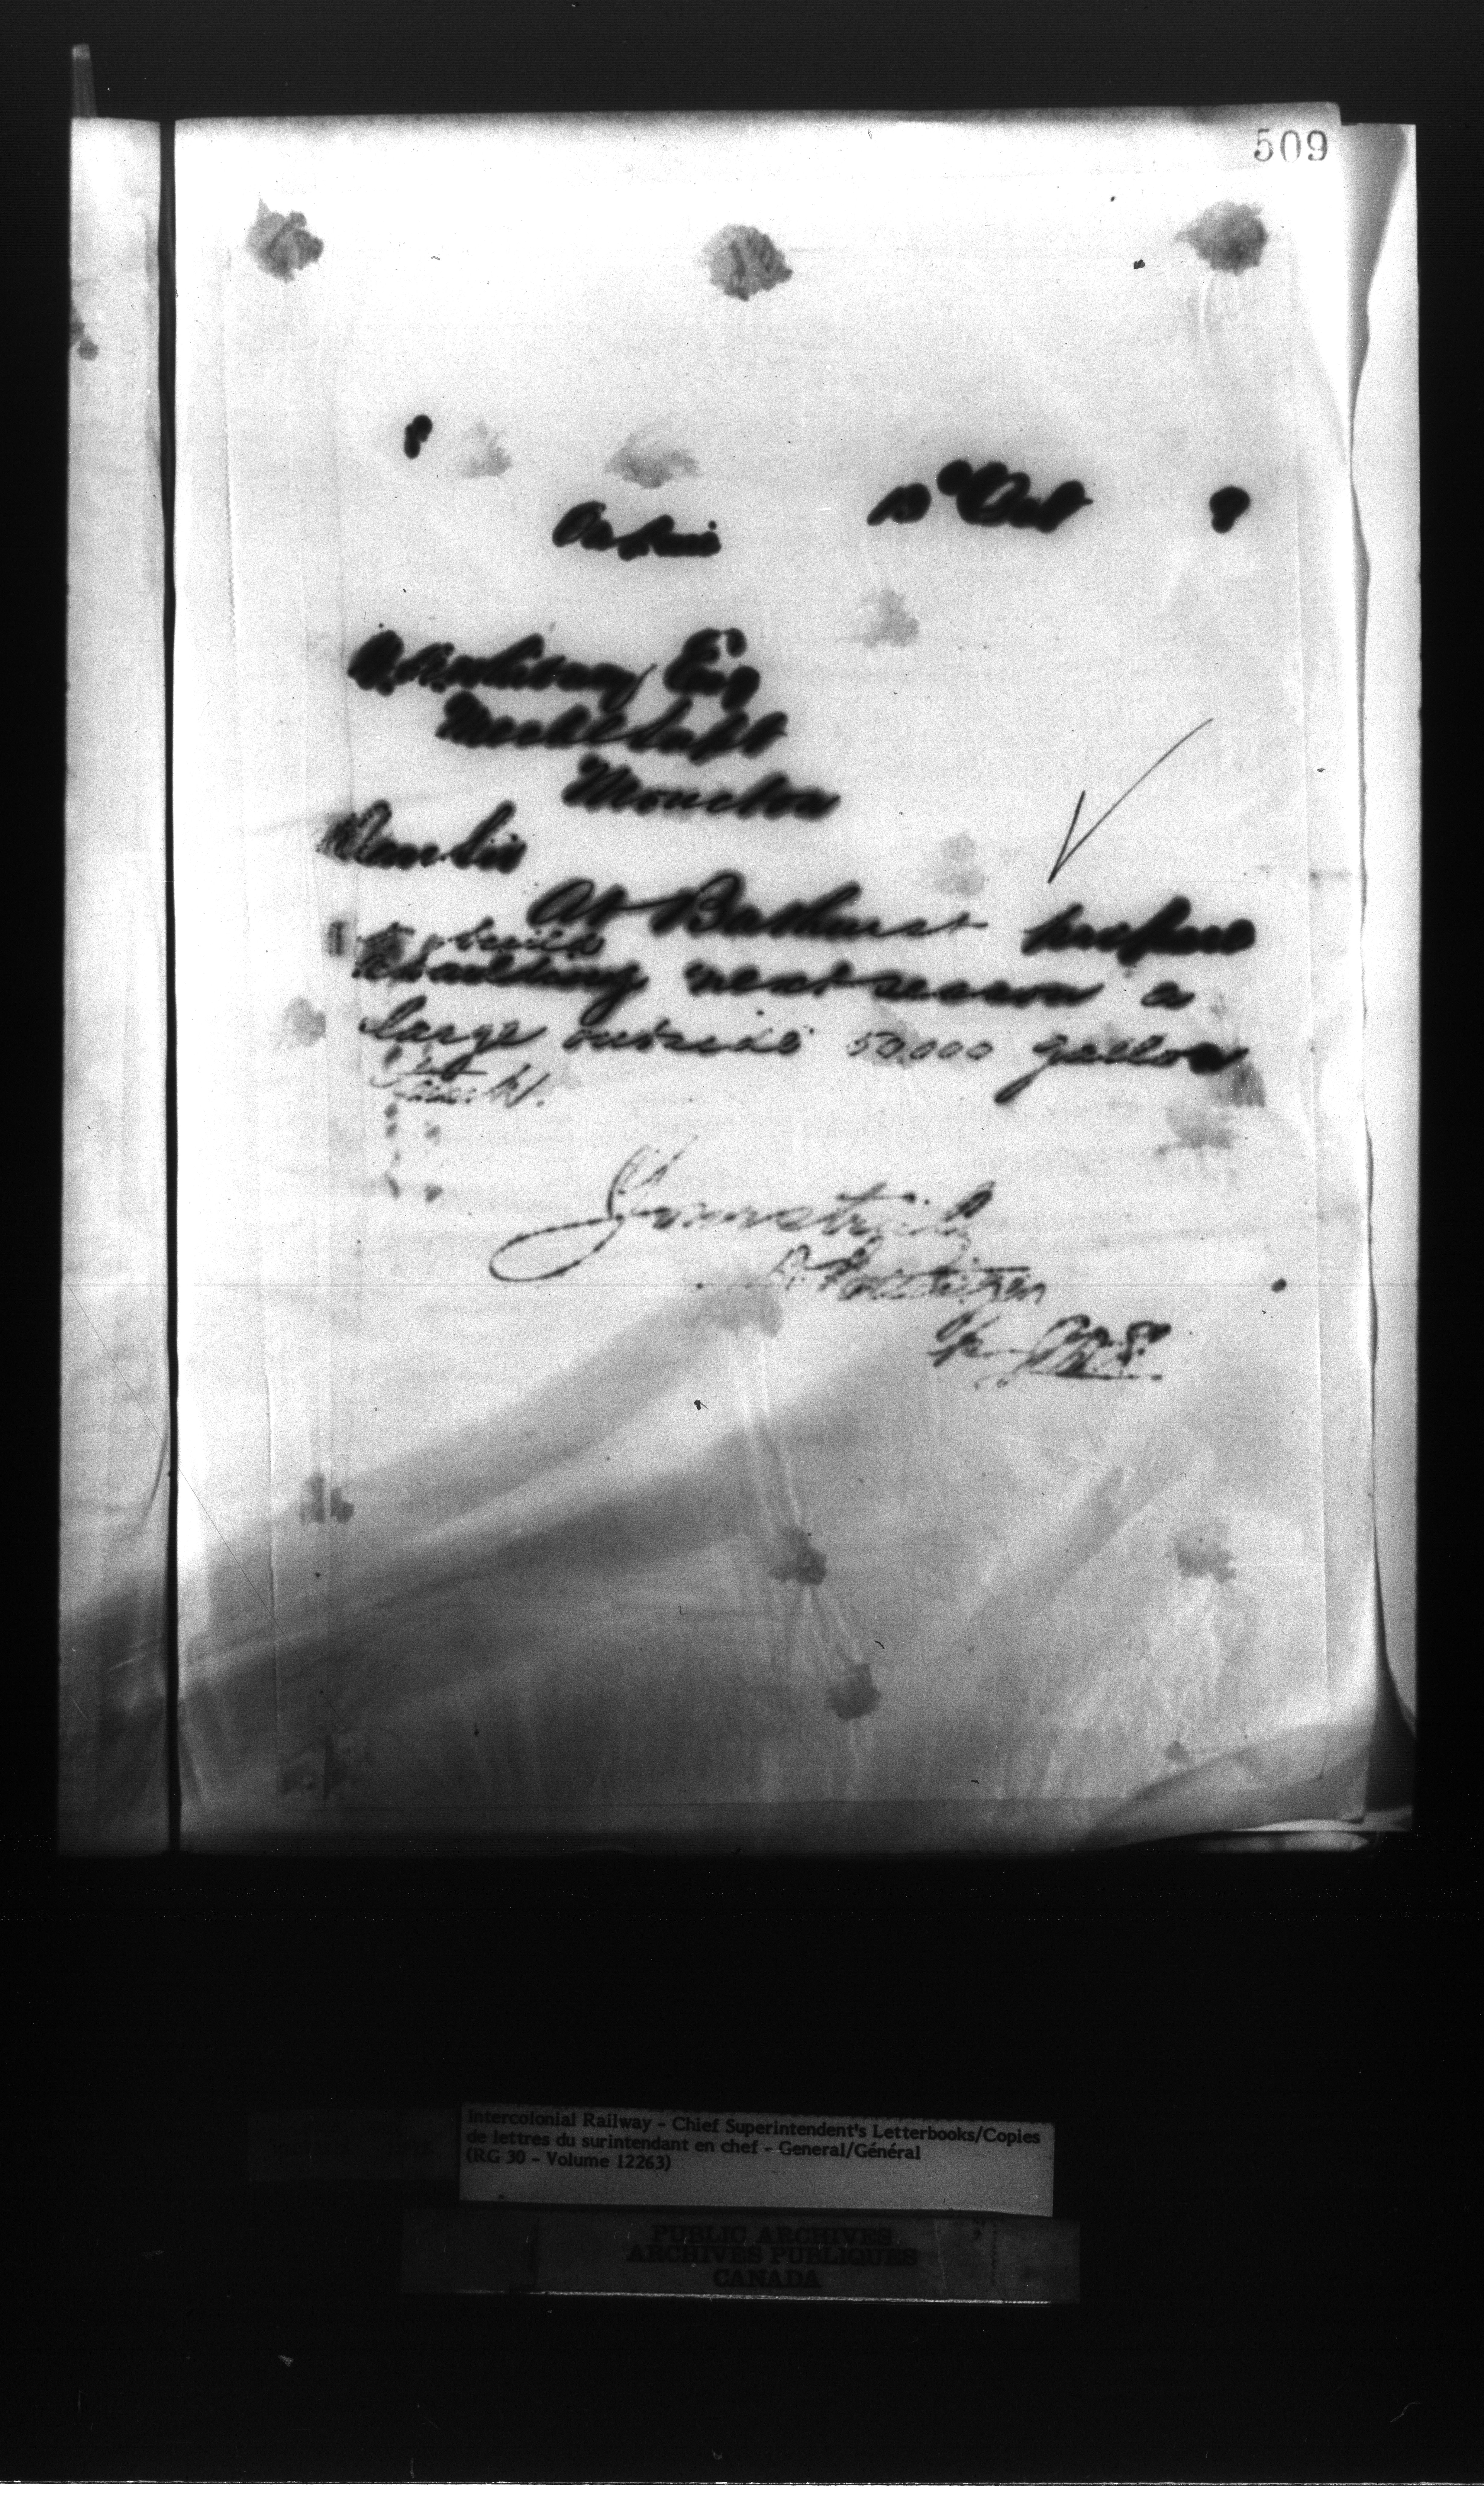 509
13th Oct 8
Esq
Mechl Supt
Moncton
Dear Sir
At Bathurst prepare
to build
next season a
large outside 50,000 gallon
Tank.
Yours truly
D. Pottinger
Intercolonial Railway - Chief Superintendent's Letterbooks/Copies
de lettres du surintendant en chef - General/Général
(RG 30 - Volume 12263)
PUBLIC ARCHIVES
ARCHIVES PUBLIQUES
CANADA